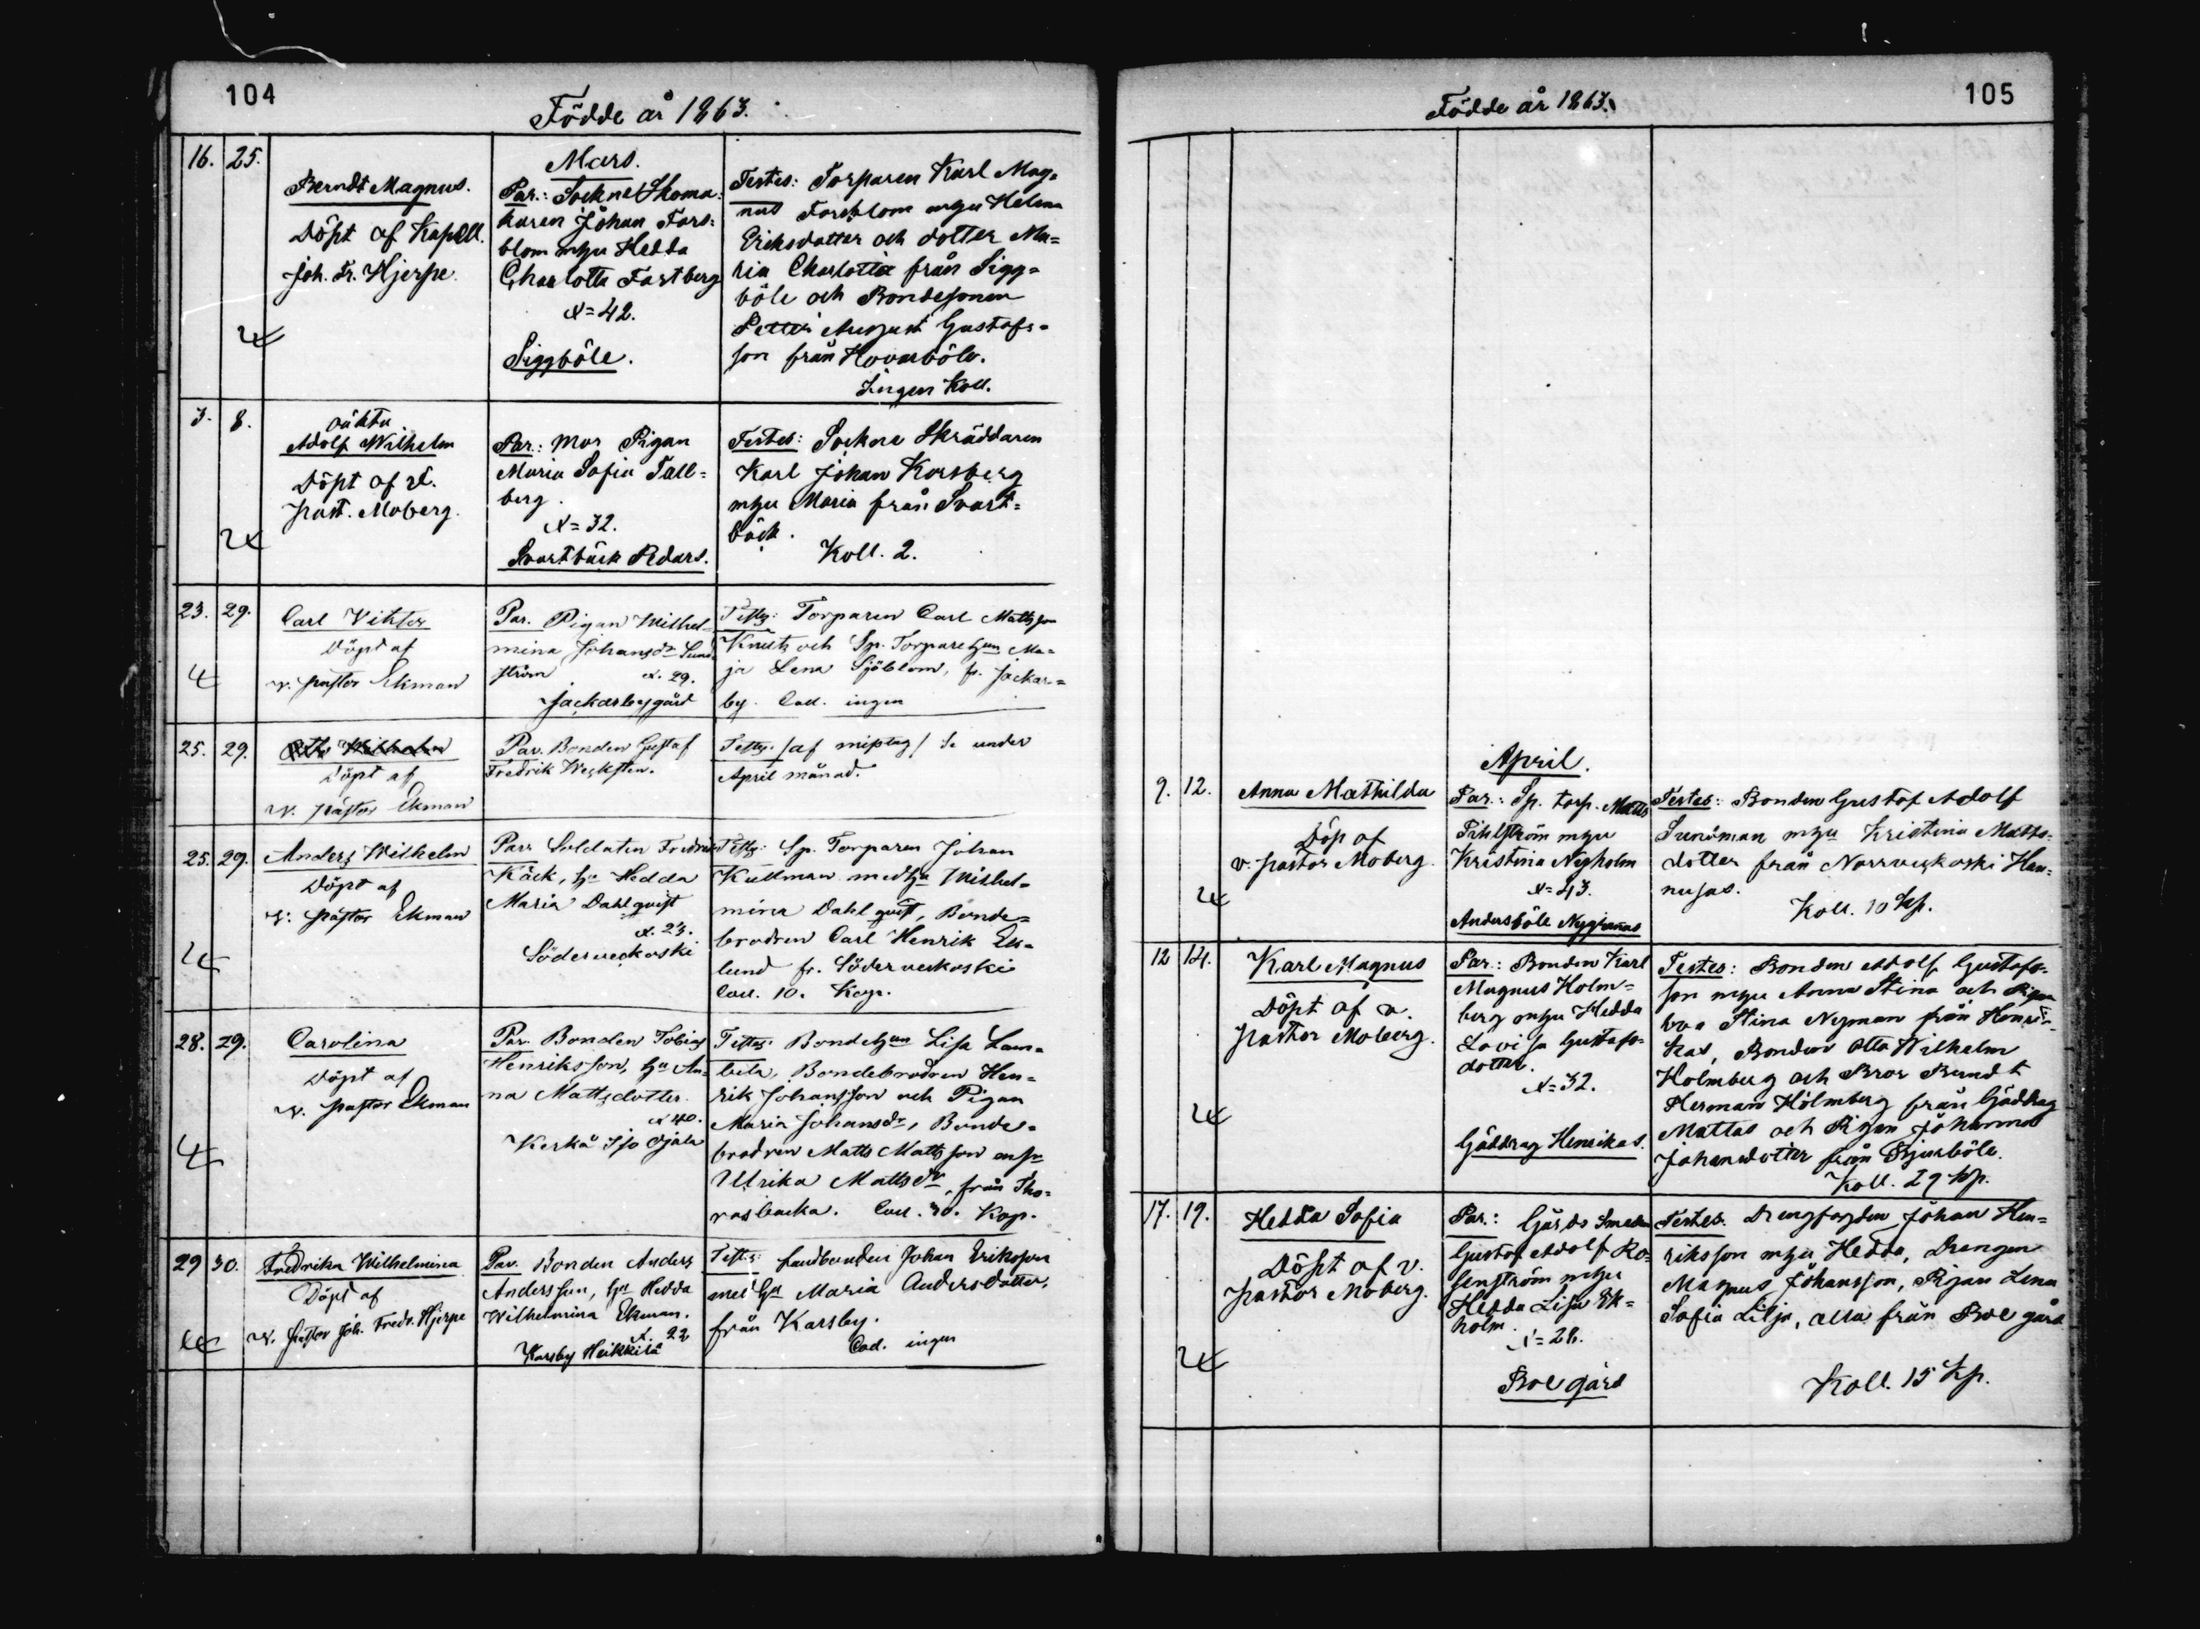 104
Födde år 1863.
Mars.
16. 25.
Berndt Magnus.
Döpt af Kapell.
Joh. Fr. Hjerpe.
Par.: Sockne Skoma-
karen Johan Fors-
blom mhu Hedda
Charlotta Fastberg
42.
Siggböle.
Testes: Torparen Karl Mag-
nus Forsblom mhu Helena
Eriksdotter och dotter Ma-
ria Charlotta från Sigg-
böle och Bondesonen
Petter August Gustafs-
son från Hovarböle.
Ingen Koll.
3. 8.
oäkta
Adolf Wilhelm
Döpt af v.
past. Moberg.
Par: Mor Pigan
Maria Sofia Tall-
berg.
32.
Svartbäck Pedars.
Testes: Sockne Skräddaren
Karl Johan Korsberg
mhu Maria från Svart-
bäck.
Koll. 2.
23. 29.
Carl Viktor
Döpt af
v. pastor Ekman
Par. Pigan Wilhel-
mina Johansdr Sund-
ström
29.
Jackarbygård
Testes: Torparen Carl Mattsson
Knuts och Sp. Torpare Hun Ma-
ja Lena Sjöblom, fr. Jackar-
by. Coll. ingen
25. 29.
Otto Wilhelm
Döpt af
v. pastor Ekman
Par. Bonden Gustaf
Fredrik Wecksten.
Testes: /af misstag/ Se under
April månad.
25. 29.
Anders Wilhelm
Döpt af
v. pastor Ekman
Par. Soldaten Fredrik
Käck, hu Hedda
Maria Dahlqvist
23.
Söderveckoski
Testes: Sp. Torparen Johan
Kullman med hu Wilhel-
mina Dahlqvist, Bonde-
brodren Carl Henrik Ek-
lund fr. Söderveckoski
Coll. 10. Kop.
28. 29.
Carolina
Döpt af
v. pastor Ekman
Par. Bonden Tobias
Henriksson, hu An-
na Mattsdotter.
40.
Kerko
Testes: Bonde Hun Lisa Lam-
bela, Bondebrodren Hen-
rik Johansson och Pigan
Maria Johansdr, Bonde-
brodren Matts Mattsson
Ulrika Mattsdr, från Tho-
rasbacka. Coll. 30. Kop.
29 30.
Fredrika Wilhelmina
Döpt af
v. pastor Joh. Fredr. Hjerpe
Par. Bonden Anders
Andersson, hu Hedda
Wilhelmina Ekman.
22
Karsby Heikkilä
Testes: Landbonden Johan Eriksson
med hu Maria Andersdotter.
från Karsby.
Coll. ingen
105
Födde år 1863.
April.
9. 12.
Anna Mathilda
Döp af
v. pastor Moberg.
Par.: Sp. torp. Matts
Pihlström mhu
Kristina Nyholm
43.
Andersböle Nygrannas
Testes: Bonden Gustaf Adolf
Sundman mhu Kristina Matts-
dotter från Norrveckoski Han-
nusas.
Koll. 10 Kp.
12 14.
Karl Magnus
Döpt af v.
pastor Moberg.
Par.: Bonden Karl
Magnus Holm-
berg mhu Hedda
Lovisa Gustafs-
dotter.
32.
Gäddrag Henrikas.
Testes: Bonden Adolf Gustafs-
son mhu Anna Stina och Pigan
Eva Stina Nyman från Henri-
kas, Bonden Otto Wilhelm
Holmberg och Bror Berndt
Herman Holmberg från Gäddrag
Mattas och Pigan Johanna
Johansdotter från Bjurböle.
Koll. 29 Kp.
17. 19.
Hedda Sofia
Döpt af v.
pastor Moberg.
Par.: Gårds Smeden
Gustaf Adolf Ro-
senström mhu
Hedda Lisa Ek-
holm.
28.
Boe gård
Testes. Drengfogden Johan Hen-
riksson mhu Hedda, Drengen
Magnus Johansson, Pigan Lena
Sofia Lilja, alla från Boe gård
Koll. 15 Kp.